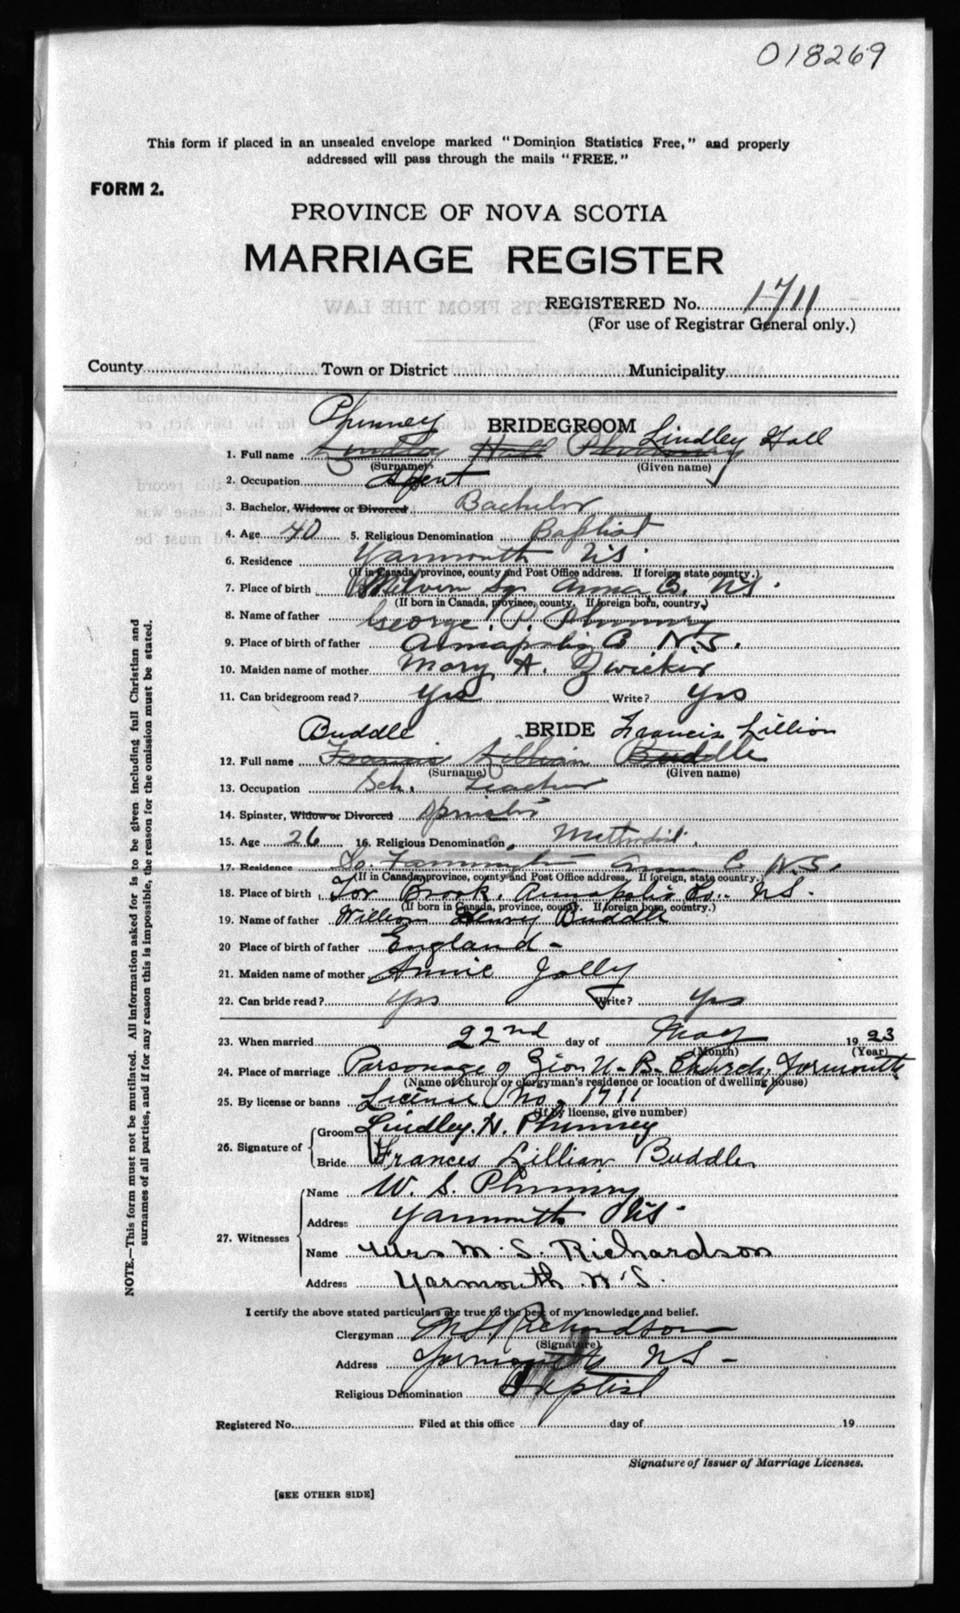 018269
This form if placed in an unsealed envelope marked "Dominion Statistics Free," and properly
addressed will pass through the mails "FREE."
FORM 2.
PROVINCE OF NOVA SCOTIA
MARRIAGE REGISTER
REGISTERED No. 1711
(For use of Registrar General only.)
County Town or District Municipality
Phinney BRIDEGROOM Lindley Hall
1. Full name Lindley Hall Phinney
(Surname) (Given name)
2. Occupation Agent
3. Bachelor, Widower or Divorced Bachelor
4. Age 40 5. Religious Denomination Baptist
6. Residence Yarmouth N.S.
(If in Canada, province, county and Post Office address. If foreign state country.)
7. Place of birth Melvern Sq. Anna Co. N.S.
(If born in Canada, province, county. If foreign born, country.)
8. Name of father George. P. Phinney
9. Place of birth of father Annapolis Co N.S.
10. Maiden name of mother Mary A. Zwicker
11. Can bridegroom read? Yes Write? Yes
Buddle BRIDE Francis Lillion
12. Full name Francis Lillian Buddle
(Surname) (Given name)
13. Occupation Sch. Teacher
14. Spinster, Widow or Divorced Spinster
15. Age 26 16. Religious Denomination Methodist.
17. Residence So. Farmington Anna C. N.S.
(If in Canada, province, county and Post Office address. If foreign, state country.)
18. Place of birth Tor Brook, Annapolis Co. NS.
(If born in Canada, province, county. If foreign born, country.)
19. Name of father William Henry Buddle
20 Place of birth of father England -
21. Maiden name of mother Annie Jolly
22. Can bride read? Yes Write? Yes
23. When married 22nd day of May 1923
(Month) (Year)
24. Place of marriage Parsonage of Zion U. B. Church, Yarmouth
(Name of church or clergyman's residence or location of dwelling house)
25. By license or banns License No. 1711
(If by license, give number)
26. Signature of Groom Lindley. H. Phinney
Bride Frances Lillian Buddle
27. Witnesses Name W. S. Phinney
Address Yarmouth N.S.
Name Mrs M. S. Richardson
Address Yarmouth N.S.
I certify the above stated particulars are true to the best of my knowledge and belief.
Clergyman M S Richardson
(Signature)
Address Yarmouth NS -
Religious Denomination Baptist
Registered No. Filed at this office day of 19
Signature of Issuer of Marriage Licenses.
[SEE OTHER SIDE]
NOTE.—This form must not be mutilated. All information asked for is to be given including full Christian and
surnames of all parties, and if for any reason this is impossible, the reason for the omission must be stated.